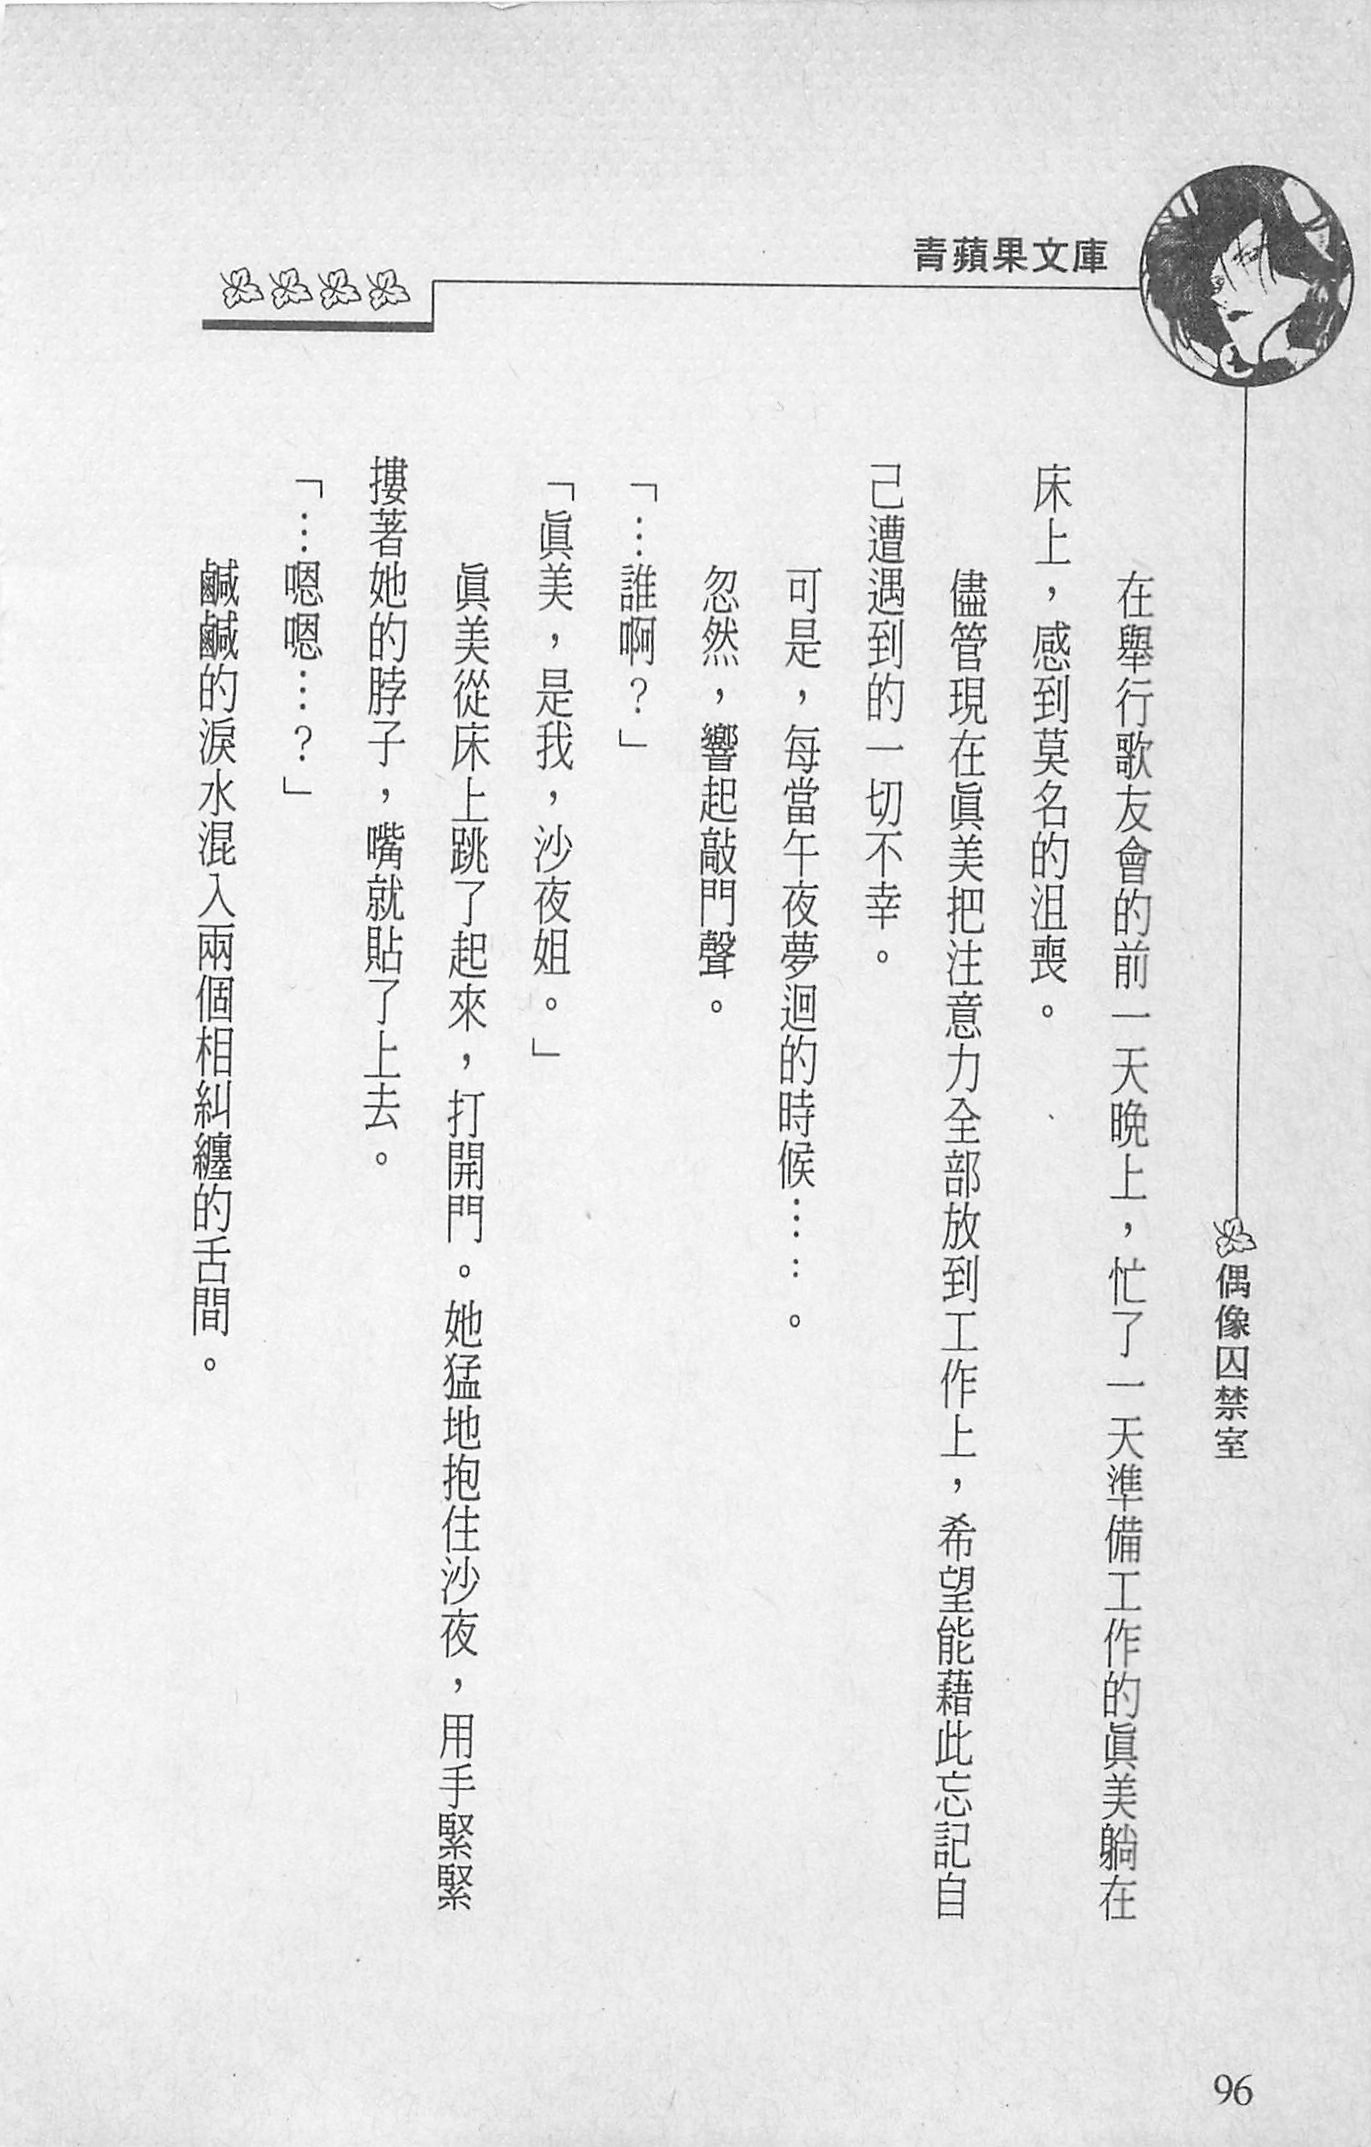 青蘋果文庫
偶像囚禁室
在舉行歌友會的前一天晚上，忙了一天準備工作的眞美躺在
床上，感到莫名的沮喪。
儘管現在眞美把注意力全部放到工作上，希望能藉此忘記自
己遭遇到的一切不幸。
可是，每當午夜夢迴的時候……。
忽然，響起敲門聲。
「…誰啊？」
「眞美，是我，沙夜姐。」
眞美從床上跳了起來，打開門。她猛地抱住沙夜，用手緊緊
摟著她的脖子，嘴就貼了上去。
「…嗯嗯…？」
鹹鹹的淚水混入兩個相糾纏的舌間。
96